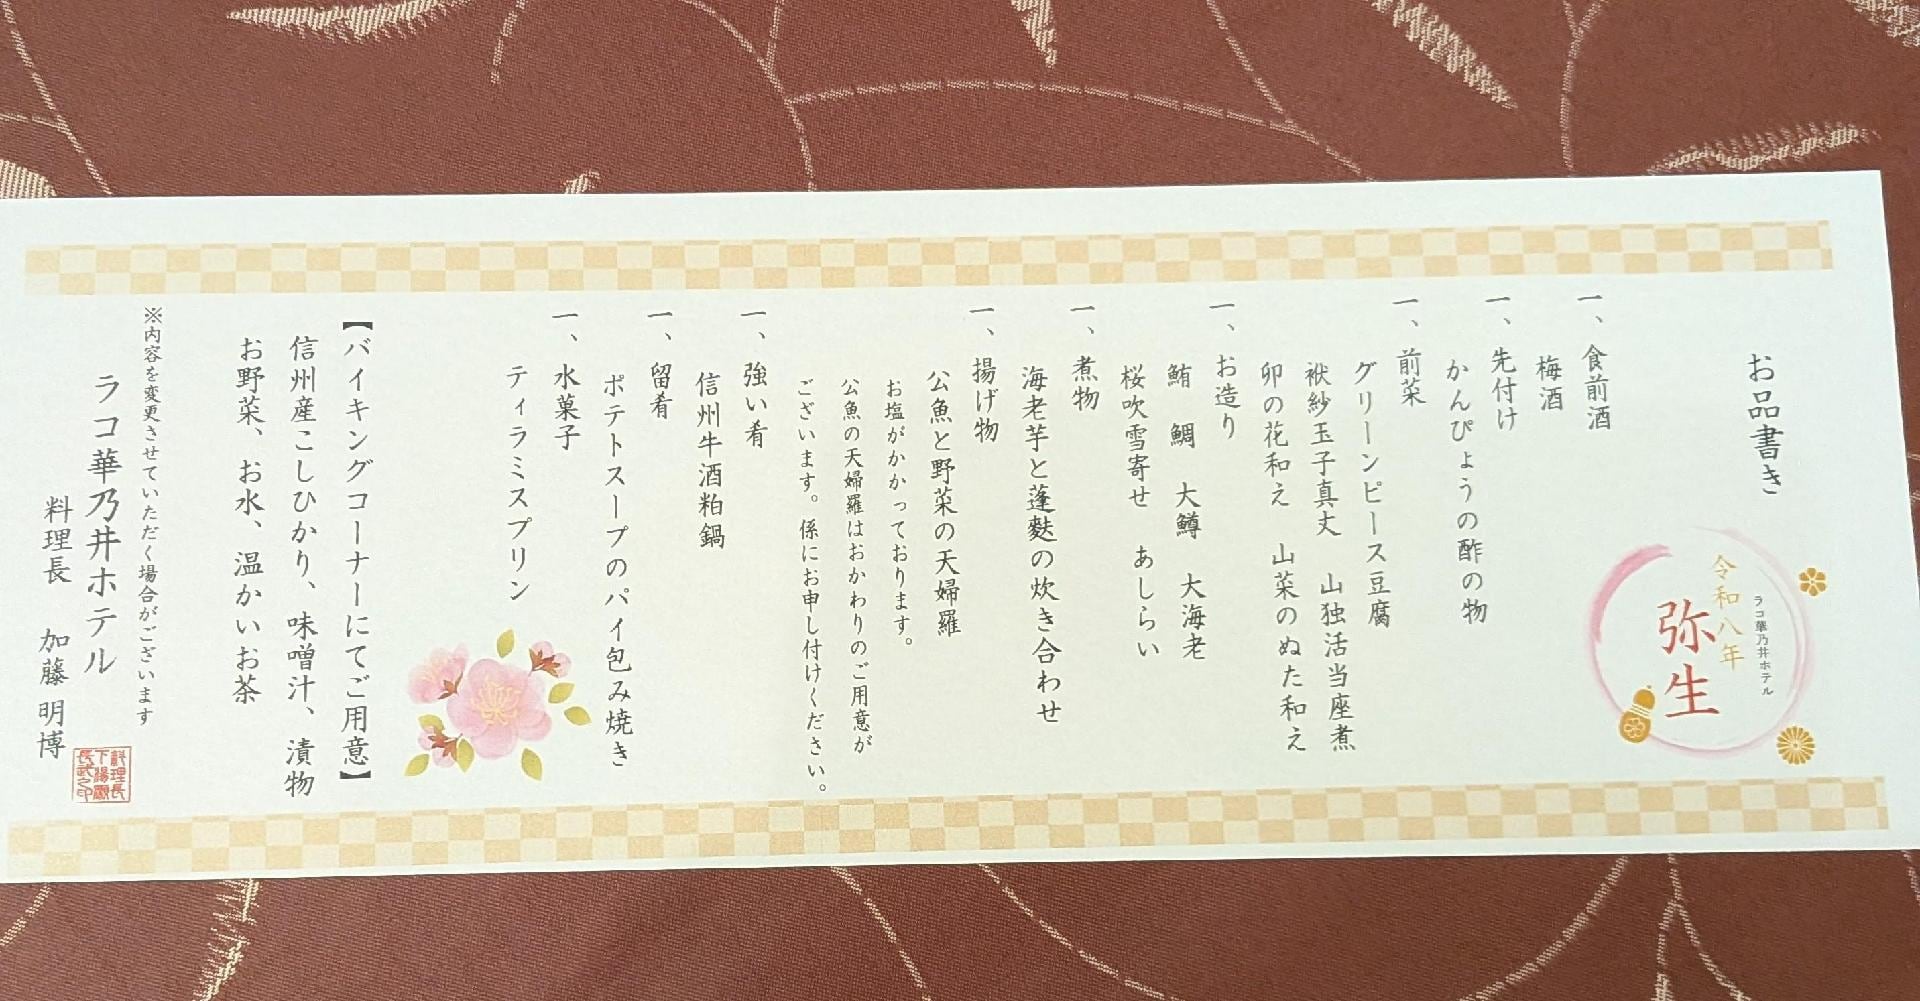 お品書き
令和八年
弥生
ラコ華乃井ホテル
一、食前酒
梅酒
一、先付け
かんぴょうの酢の物
一、前菜
グリーンピース豆腐
袱紗玉子真丈　山独活当座煮
卯の花和え　山菜のぬた和え
一、お造り
鮪　鯛　大鱒　大海老
桜吹雪寄せ　あしらい
一、煮物
海老芋と蓬麩の炊き合わせ
一、揚げ物
公魚と野菜の天婦羅
お塩がかかっております。
公魚の天婦羅はおかわりのご用意が
ございます。係にお申し付けください。
一、強い肴
信州牛酒粕鍋
一、留肴
ポテトスープのパイ包み焼き
一、水菓子
ティラミスプリン
【バイキングコーナーにてご用意】
信州産こしひかり、味噌汁、漬物
お野菜、お水、温かいお茶
※内容を変更させていただく場合がございます
ラコ華乃井ホテル
料理長　加藤 明博